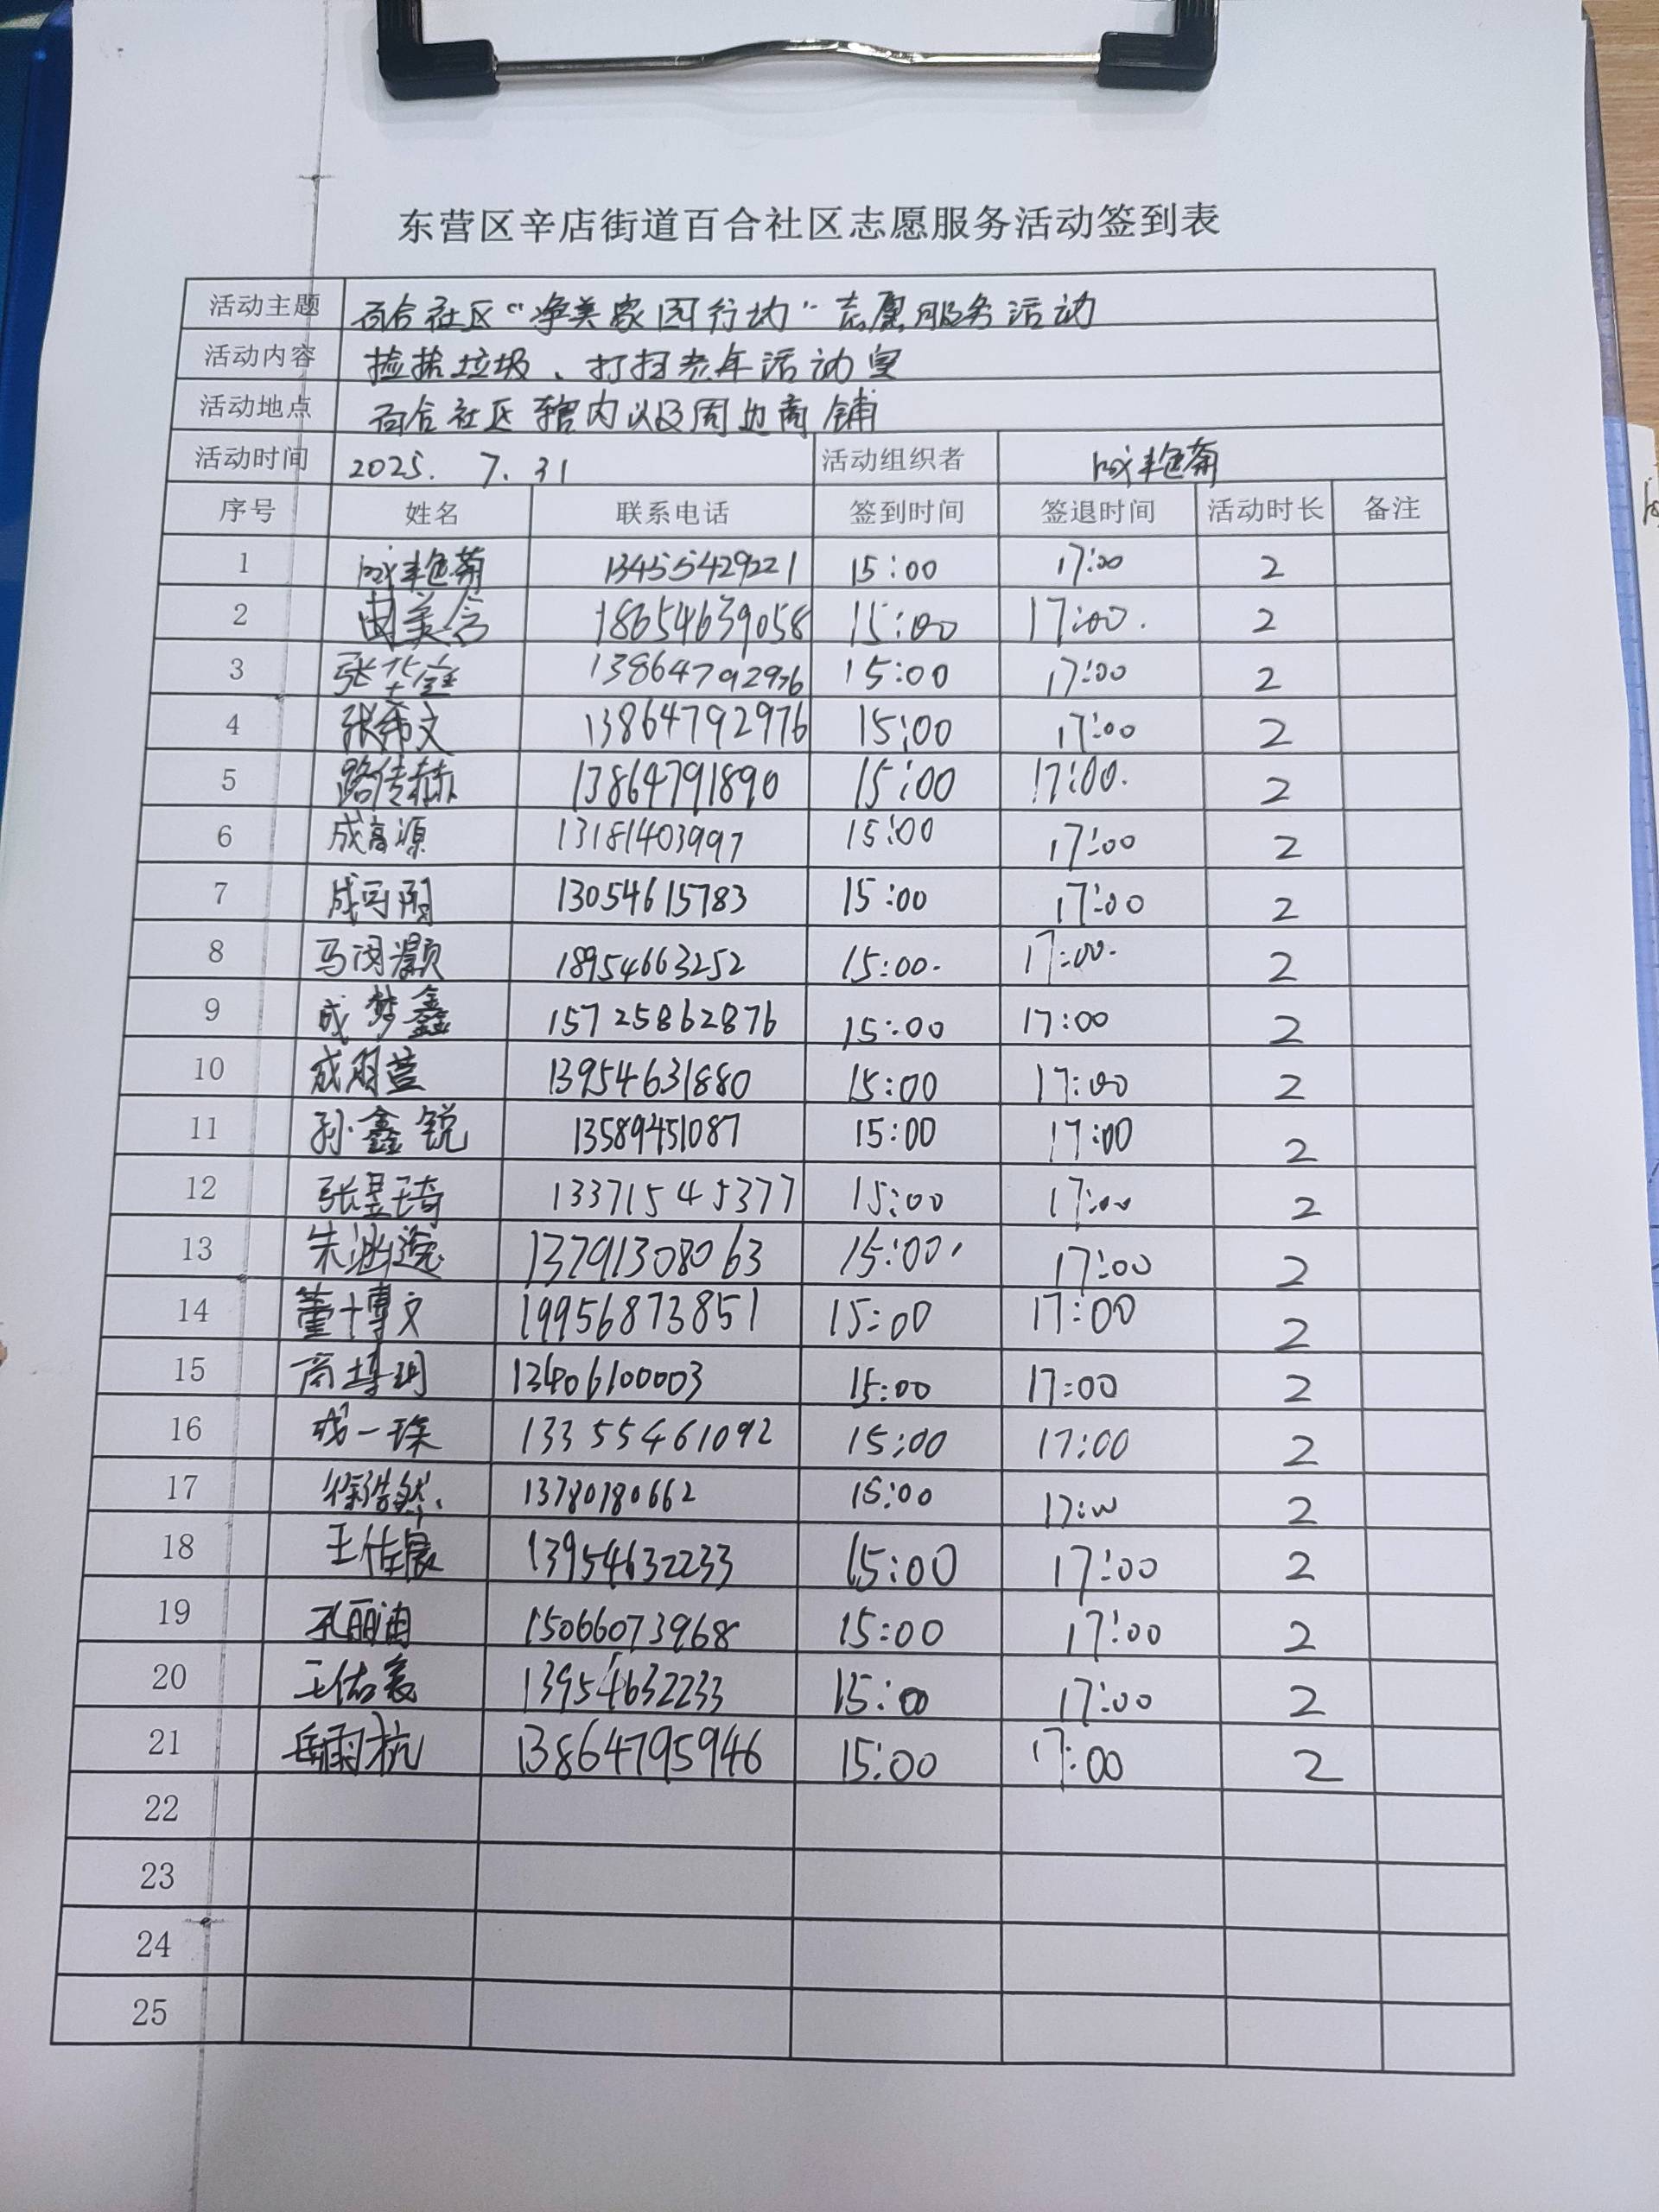 东营区辛店街道百合社区志愿服务活动签到表
活动主题 百合社区“净美家园行动”志愿服务活动
活动内容 捡拾垃圾、打扫老年活动室
活动地点 百合社区辖内以及周边商铺
活动时间 2025. 7. 31 活动组织者 成艳菊
序号 姓名 联系电话 签到时间 签退时间 活动时长 备注
1 成艳菊 13455429221 15:00 17:00 2
2 闵美含 18654639058 15:00 17:00. 2
3 13864792976 15:00 17:00 2
4 张希文 13864792976 15:00 17:00 2
5 路传赫 13864791890 15:00 17:00. 2
6 成高源 13181403997 15:00 17:00 2
7 成可 13054615783 15:00 17:00 2
8 马闵灏 18954663252 15:00. 17:00. 2
9 成梦鑫 15725862876 15:00 17:00 2
10 成萱 13954631880 15:00 17:00 2
11 孙鑫锐 13589451087 15:00 17:00 2
12 张昱琦 13371545377 15:00 17:00 2
13 朱逸 13791308063 15:00. 17:00 2
14 董博文 19956873851 15:00 17:00 2
15 商博 13406100003 15:00 17:00 2
16 成一琛 13355461092 15:00 17:00 2
17 徐浩然. 13780780662 15:00 17:00 2
18 王佐宸 13954632233 15:00 17:00 2
19 孔丽 15066073968 15:00 17:00 2
20 王佑宸 13954632233 15:00 17:00 2
21 岳雨杭 13864795946 15:00 17:00 2
22
23
24
25